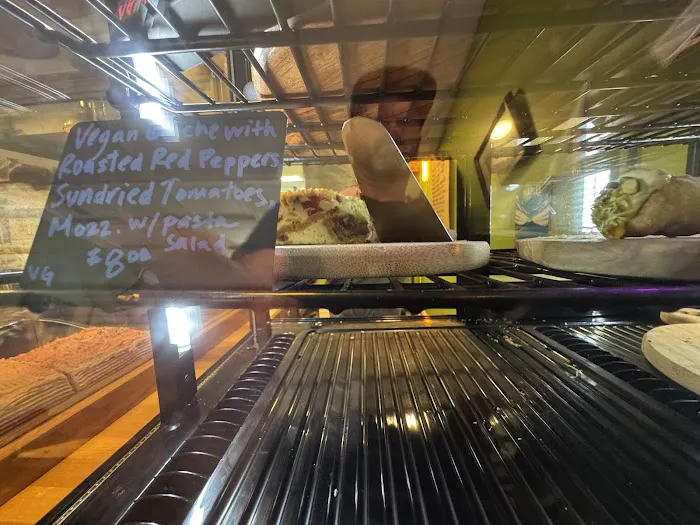 Vegan Quiche with
Roasted Red Peppers
Sundried Tomatoes,
Mozz. w/pasta
$8.00 salad
VG